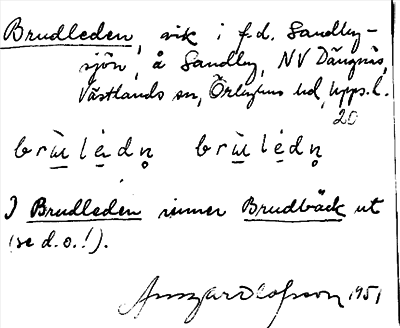 Brudleden, vik i f.d. Sandby-
sjön, å Sandby, NV Dängnäs,
Västlands sn, Örbyhus hd, Upps. l.
20
brùlèdn̥ brùlédn̥
I Brudleden rinner Brudbäck ut
(se d.o.!).
Ansgar Olofsson 1951